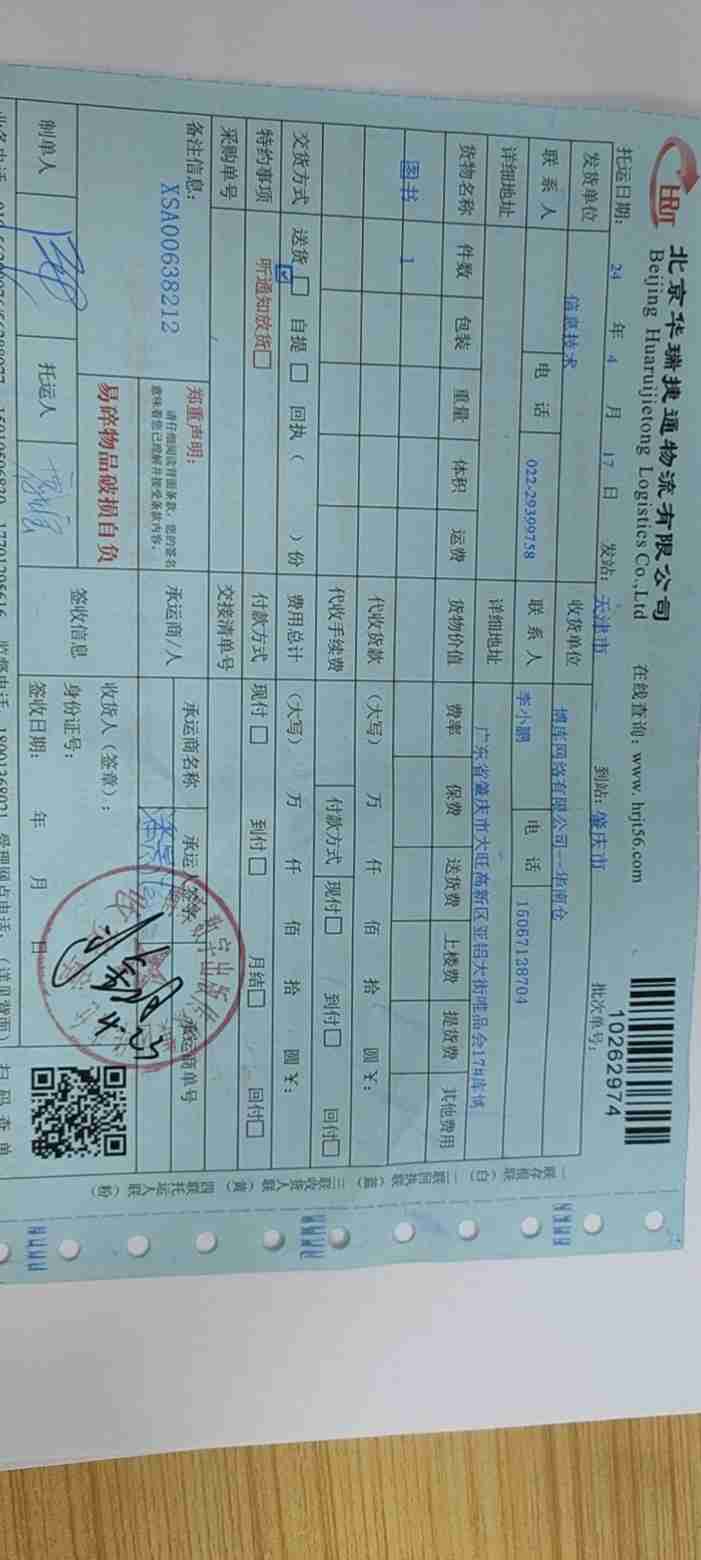 HRJT
北京华瑞捷通物流有限公司
Beijing Huaruijietong Logistics Co.,Ltd
在线查询：www. hrjt56.com
10262974
托运日期： 24 年 4 月 17 日 发站：天津市 到站：肇庆市 批次单号：
发货单位 信息技术 收货单位 博库网络有限公司--华南仓
联系人 电话 022-29399758 联系人 李小鹏 电话 15067138704
详细地址 详细地址 广东省肇庆市大旺高新区亚铝大街唯品会17#库博
货物名称 件数 包装 重量 体积 运费 货物价值 费率 保费 送货费 上楼费 提货费 其他费用
图书 1
代收货款 （大写） 万 仟 佰 拾 圆￥：
代收手续费 付款方式 现付□ 到付□ 回付□
交货方式 送货☑ 自提□ 回执（ ）份 费用总计 （大写） 万 仟 佰 拾 圆￥：
特约事项 听通知放货□ 付款方式 现付□ 到付□ 月结□ 回付□
采购单号 交接清单号
备注信息： XSA00638212
郑重声明：
请仔细阅读背面条款，您的签名
意味着您已理解并接受条款内容。
易碎物品破损自负
承运商/人 承运商名称 承运人签字 承运商单号
签收信息 收货人（签章）：
身份证号：
签收日期： 年 月 日
4.23
制单人 托运人
扫码查单
一联存根联（白） 二联回执联（蓝） 三联收货人联（黄） 四联托运人联（粉）